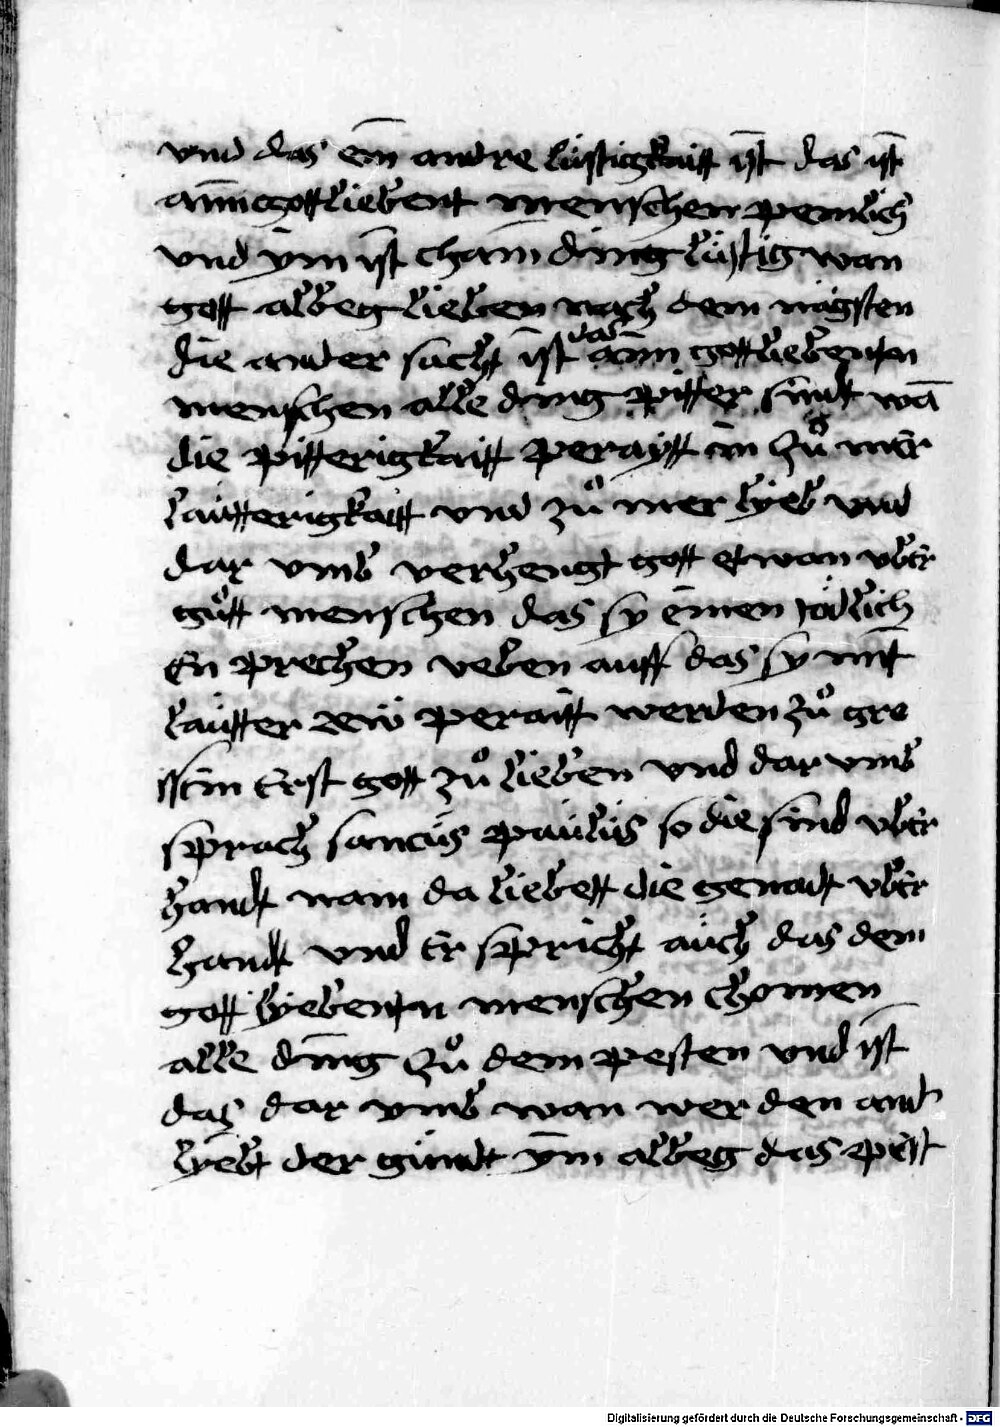 vnd das ein andre lustigkaitt ist das ist
aim gottliebent menschen pewlich
vnd ym ist chain ding lüstig wan
gott albeg lieben nach dem nagsten
die ander sach ist das aim gottliebenten
menschen alle ding pitter sindt wā
die pitterigkaitt peraytt in zů mer
lautterigkaitt vnd zů mer lyeb vnd
dar vmb verhengt gott etwan vber
gůtt menschen das sy einen tödlich
en prechen veben auff das sy mit
lautter rew peraitt werden zů gre
sserm erst gott zů lieben vnd dar vmb
sprach sanctus paulus so die sund vber
handt nam da liebett die genadt vber
handt vnd er spricht auch das dem
gott lyebenten menschen chomen
alle ding zů dem pesten vnd ist
das dar vmb wan wer den and
lyebt der gündt ym albeg das pest
Digitalisierung gefördert durch die Deutsche Forschungsgemeinschaft - DFG